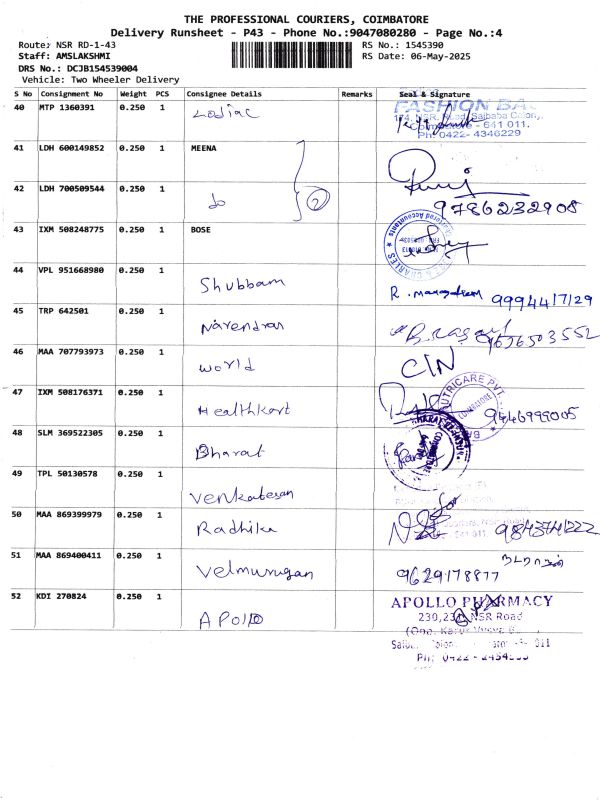 THE PROFESSIONAL COURIERS, COIMBATORE
Delivery Runsheet - P43 - Phone No.:9047080280 - Page No.:4
Route: NSR RD-1-43
RS No.: 1545390
Staff: AMSLAKSHMI
RS Date: 06-May-2025
DRS No.: DCJB154539004
Vehicle: Two Wheeler Delivery
S No Consignment No Weight PCS Consignee Details Remarks Seal & Signature
40 MTP 1360391 0.250 1 Zodiac
FASHION
174, NSR. Road, Saibaba Colony,
Coimbatore - 641 011.
Ph:0422- 4346229
41 LDH 600149852 0.250 1 MEENA
42 LDH 700509544 0.250 1 do 2
9786232908
43 IXM 508248775 0.250 1 BOSE
Chartered Accountants
44 VPL 951668980 0.250 1 Shubbam
9994417129
45 TRP 642501 0.250 1 Narendran
46 MAA 707793973 0.250 1 world
C/N
47 IXM 508176371 0.250 1 Healthkart
NUTRICARE PVT.
COIMBATORE
9446999005
48 SLM 369522305 0.250 1 Bharat
49 TPL 50130578 0.250 1 Venkatesan
50 MAA 869399979 0.250 1 Radhika
9843741222
51 MAA 869400411 0.250 1 Velmurugan
9629178877
52 KDI 270824 0.250 1 APOLLO
APOLLO PHARMACY
230,231, NSR Road